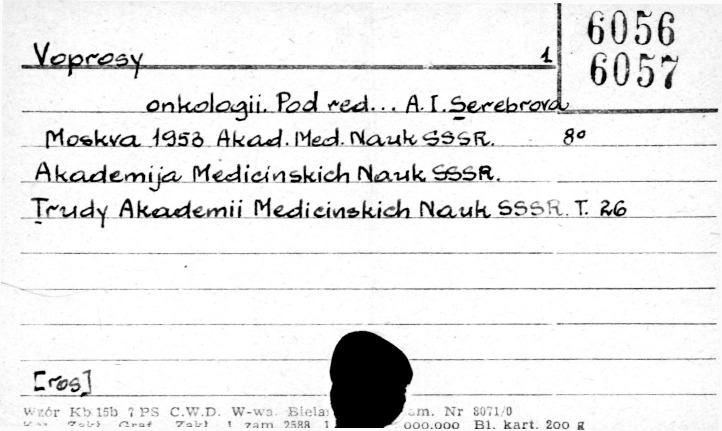 6056
Voprosy 1
6057
onkologii. Pod red... A.I. Serebrova
Moskva 1953 Akad. Med. Nauk SSSR. 8º
Akademija Medicinskich Nauk SSSR.
Trudy Akademii Medicinskich Nauk SSSR. T. 26
[ros]
Wzór Kb 15b 7 PS C.W.D. W-wa. Nr 8071/0
Zakł. Graf. Zakł. 1 zam 2588 000.000 Bl. kart. 200 g